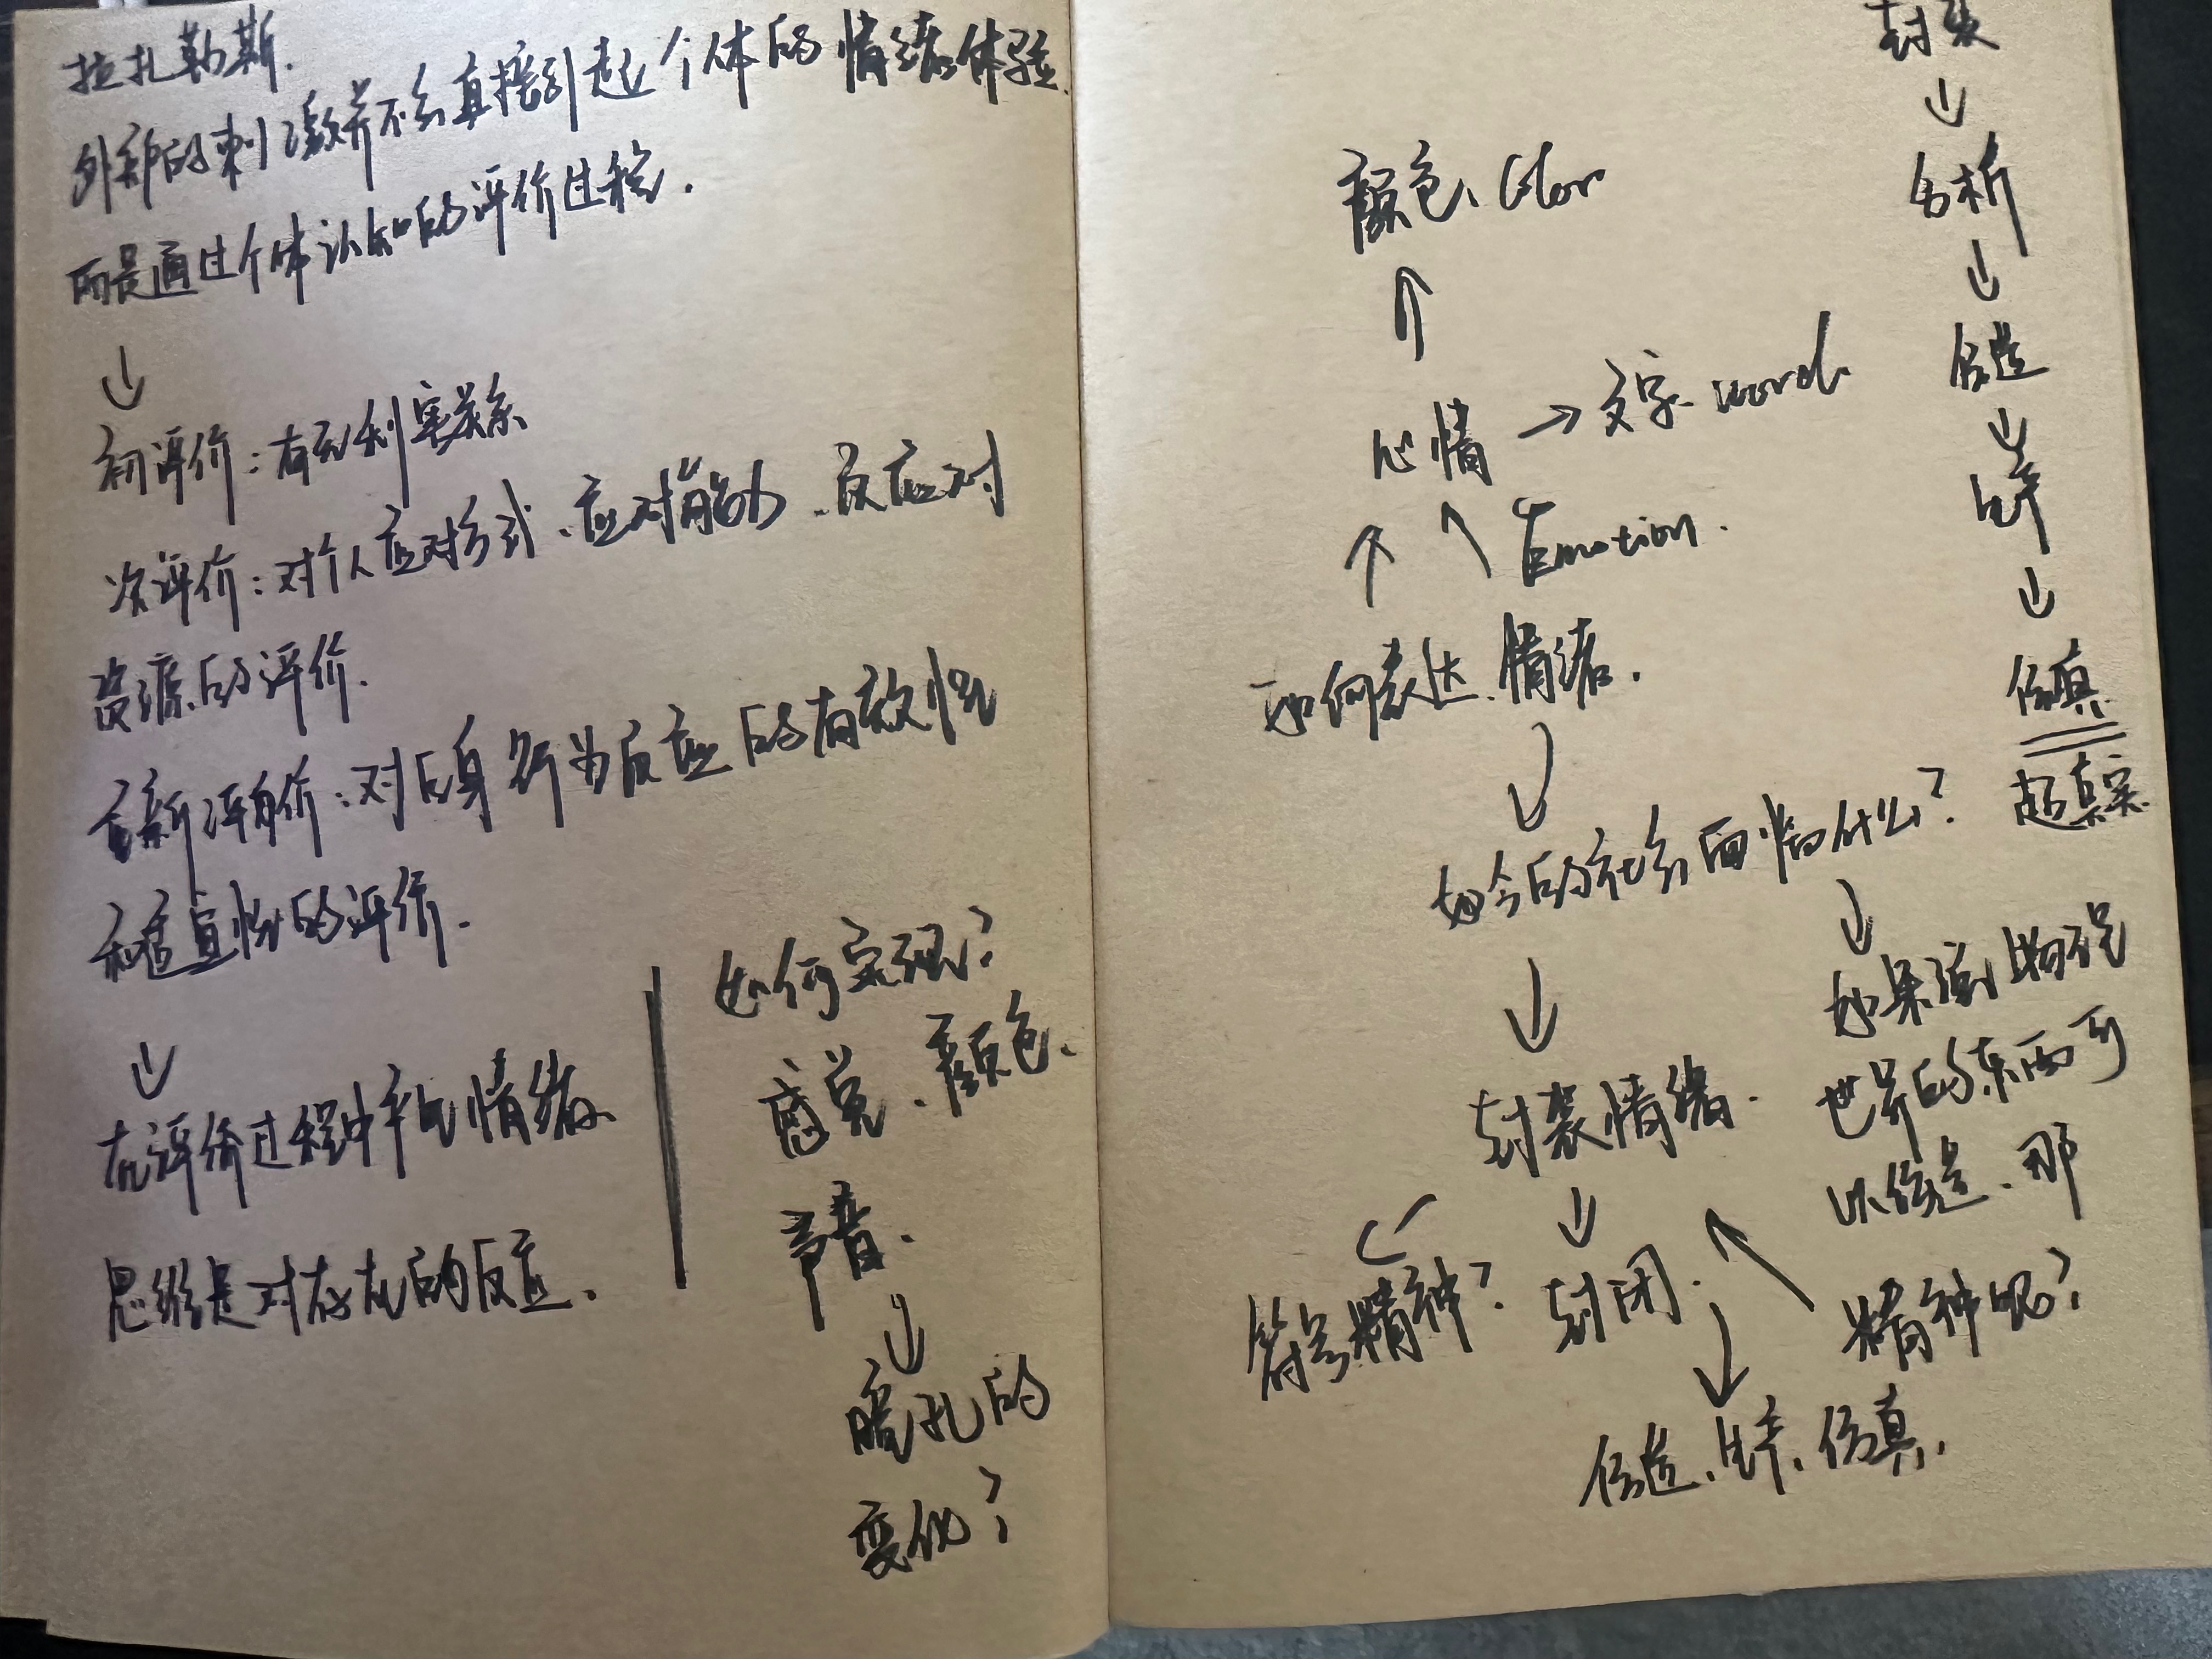 拉扎勒斯.
外部的刺激并不会直接引起个体的情绪体验.
而是通过个体认知的评价过程.
↓
初评价:有无利害关系
次评价:对个人应对方式、应对能力、反应对
资源的评价.
重新评价:对自身行为反应的有效性
和适宜性的评价.
↓
在评价过程中产生情绪.
思维是对存在的反应.
如何实现?
感觉、颜色、
声音、
↓
瞳孔的
变化?
颜色、Color
↑
心情 → 文字 word
↑ ↑ Emotion.
如何表达情绪.
↓
如今的社会面临什么?
↓
封装情绪.
↓
符号精神? 封闭.
↓
仿造、生产、仿真.
↓
如果说物理
世界的东西可
以仿造、那
精神呢?
封装
↓
分析
↓
仿造
↓
生产
↓
仿真
超真实